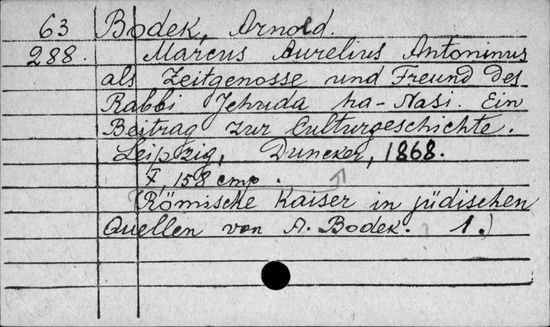 63 Bodek, Arnold.
288. Marcus Aurelius Antoninus
als Zeitgenosse und Freund des
Rabbi Jehuda ha-Nasi. Ein
Beitrag zur Culturgeschichte.
Leipzig, Duncker, 1868.
X, 158 стр.
(Römische Kaiser in jüdischen
Quellen von A. Bodek. 1.)